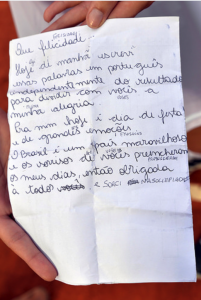 Que felicidade!
Hoje de manhã escrevi
essas palavras em português
independentemente do resultado
para dividir com vocês a
minha alegria
Pra mim hoje é dia de festa
e de grandes emoções
O Brasil é um país maravilhoso
e os sorrisos de vocês preencheram
os meus dias, então obrigada
a todos e